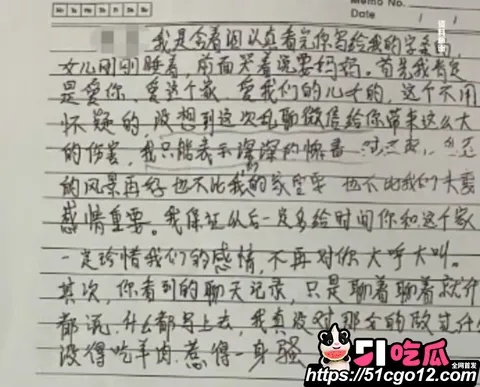 Memo No.
Date / /
我是含着泪认真看完你写给我的字条的,
女儿刚刚睡着,前面哭着说要妈妈。首先我肯定
是爱你,爱这个家,爱我们的儿女的,这个不用
怀疑的,没想到这次乱聊微信给你带来这么大
的伤害,我只能表示深深的愧疚
的风景再好也不比我的家重要 也不比我们夫妻
感情重要。我保证从后一定多给时间你和这个家
一定珍惜我们的感情,不再对你大呼大叫。
其次,你看到的聊天记录,只是聊着聊着就什
都说,什么都写上去,我真没对那女的做过什
没得吃羊肉,惹得一身骚
51吃瓜
全网首发
https://51cgo12.com